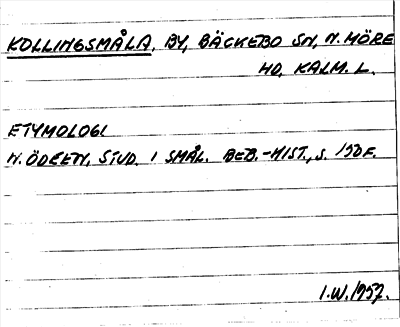 KOLLINGSMÅLA, BY, BÄCKEBO SN, N. MÖRE
HD, KALM. L.
ETYMOLOGI
N. ÖDEEN, STUD. I SMÅL. BEB.-HIST., S. 150 F.
I.W. 1957.